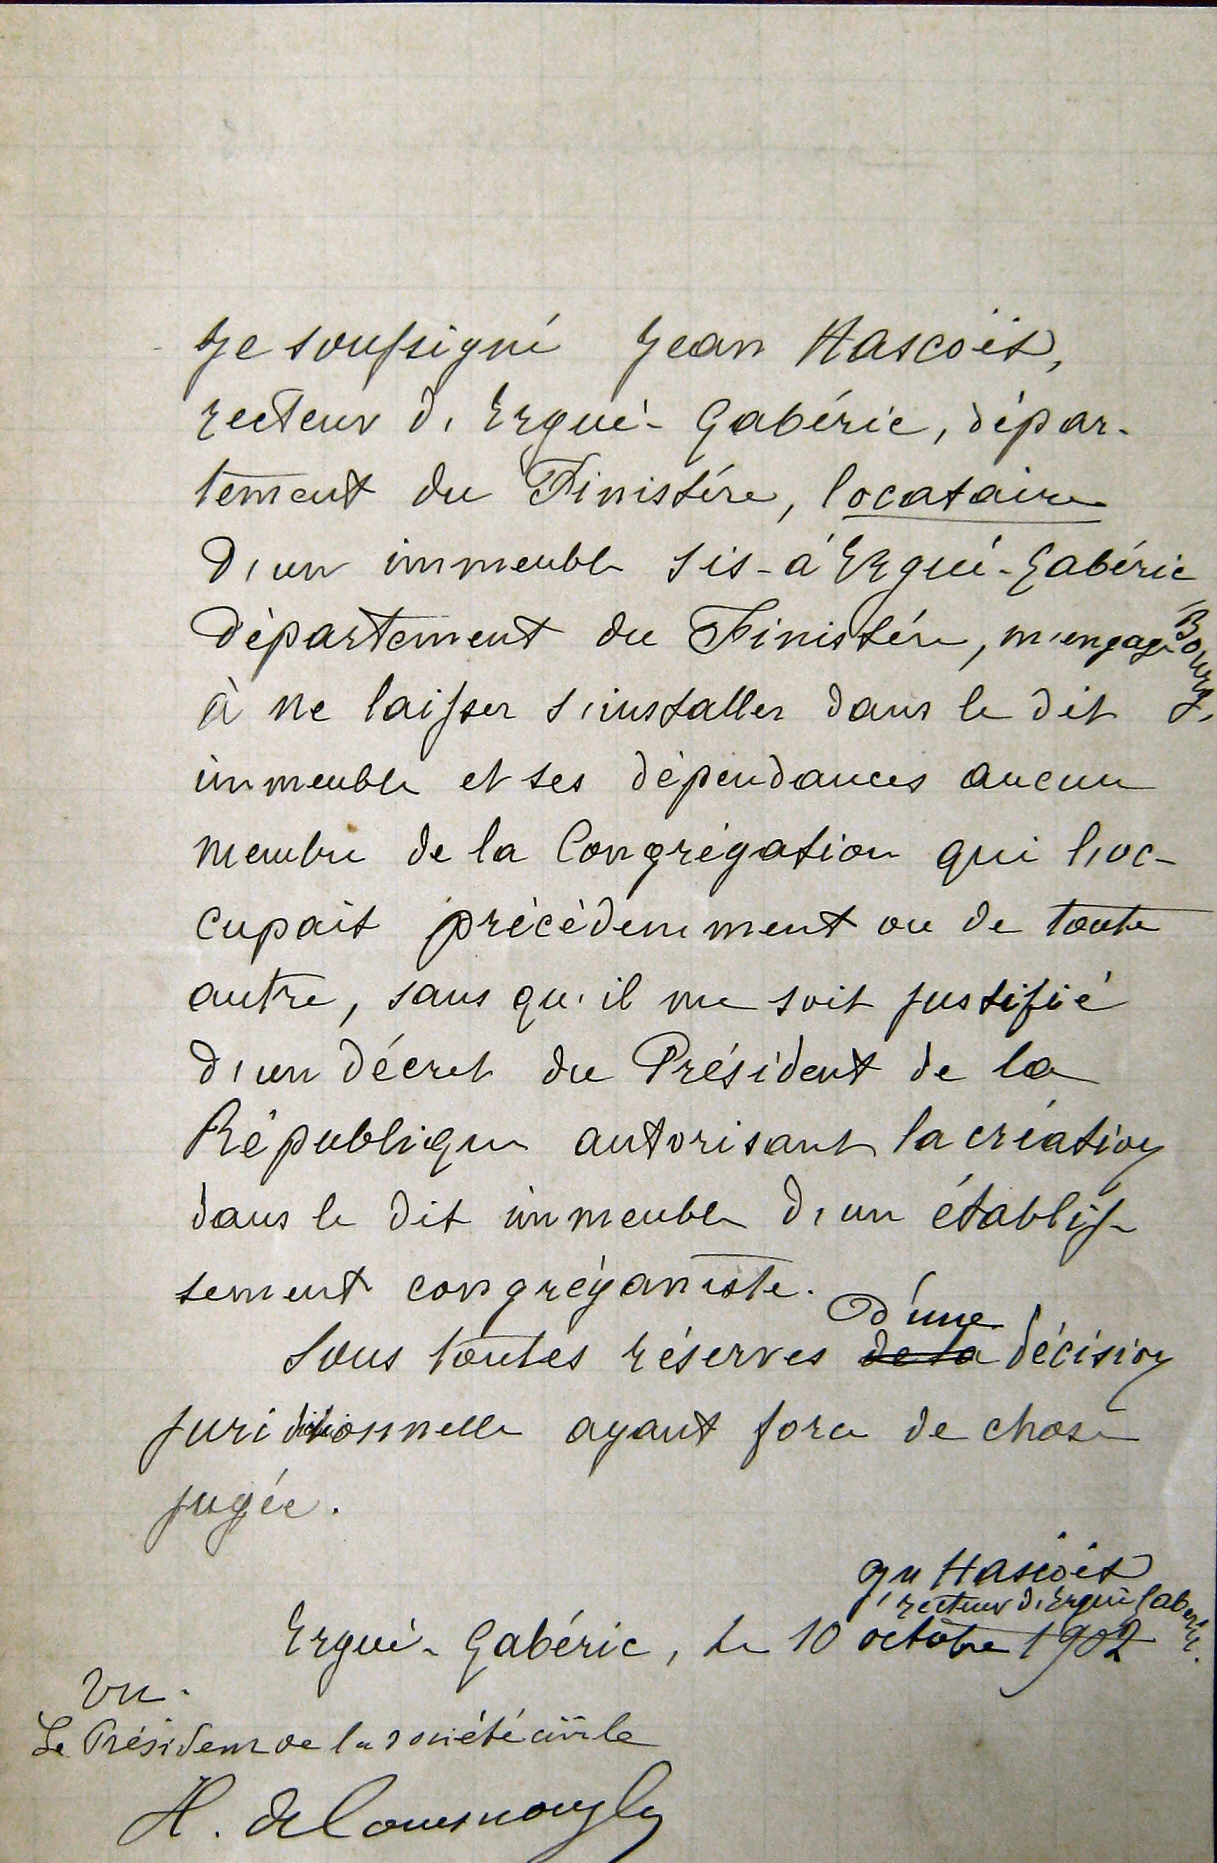 Je soussigné Jean Hascoët,
recteur d'Ergué-Gabéric, dépar-
tement du Finistère, locataire
d'un immeuble sis-à Ergué-Gabéric
Bourg,
Département du Finistère, m'engage
à ne laisser s'installer dans le dit
immeuble et ses dépendances aucun
membre de la Congrégation qui l'oc-
cupait précédemment ou de toute
autre, sans qu'il me soit justifié
d'un décret du Président de la
République autorisant la création
dans le dit immeuble d'un établis-
sement congréganiste.
d'une
Sous toutes réserves de la décision
juridictionnelle ayant force de chose
jugée.
Jn Hascoët
recteur d'Ergué Gabéric.
Ergué-Gabéric, le 10 octobre 1902
Vu.
Le Président de la société civile
H. de